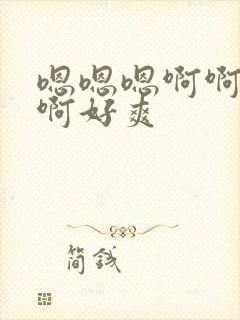 嗯嗯嗯啊啊
啊好爽
简钱